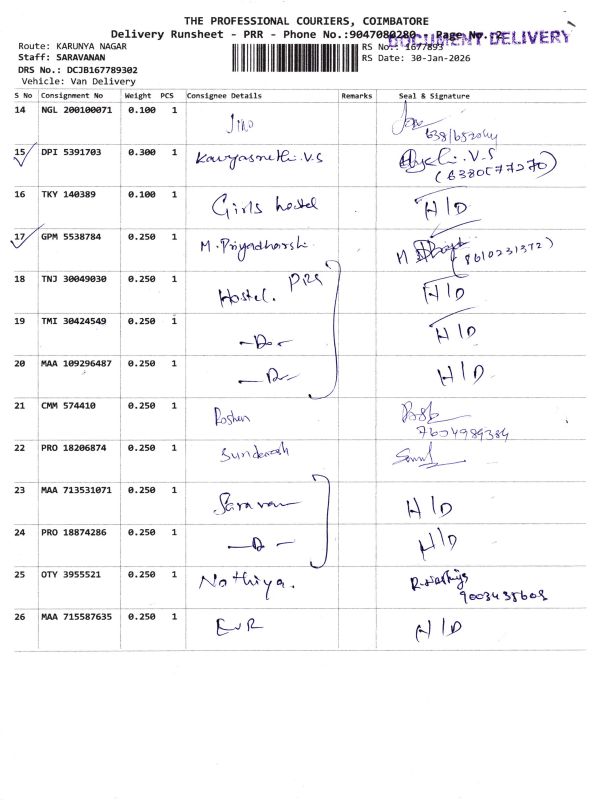 THE PROFESSIONAL COURIERS, COIMBATORE
Delivery Runsheet - PRR - Phone No.:9047080280 Page No. 2
DOCUMENT DELIVERY
Route: KARUNYA NAGAR RS No.: 1677893
Staff: SARAVANAN RS Date: 30-Jan-2026
DRS No.: DCJB167789302
Vehicle: Van Delivery
S No Consignment No Weight PCS Consignee Details Remarks Seal & Signature
14 NGL 200100071 0.100 1 Jino
15 DPI 5391703 0.300 1 V.S V.S
16 TKY 140389 0.100 1 Girls hostel H/D
17 GPM 5538784 0.250 1 M. M (8610231372)
18 TNJ 30049030 0.250 1 Hostel. H/D
19 TMI 30424549 0.250 1 -Do- H/D
20 MAA 109296487 0.250 1 -D- H/D
21 CMM 574410 0.250 1 Roshan
22 PRO 18206874 0.250 1
23 MAA 713531071 0.250 1 H/D
24 PRO 18874286 0.250 1 -D- H/D
25 OTY 3955521 0.250 1 Nathiya.
26 MAA 715587635 0.250 1 EVR H/D